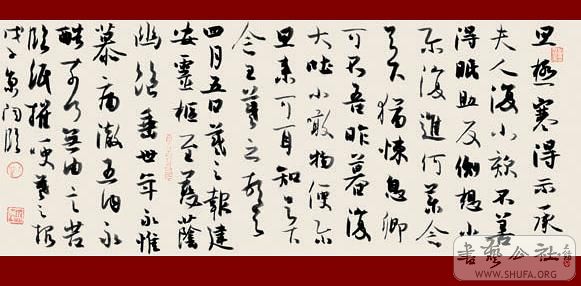 旦極寒得示承
夫人復小欬不善
得眠助反側想小
尔復進何藥念
足下猶悚息卿
可不吾昨暮復
大吐小啖物便尔
旦来可耳知足下
念王羲之頓首
四月五日羲之報建
安靈柩至慈蔭
幽絕垂卅年永惟
慕痛徹五內永
酷奈何無由言苦
臨紙摧哽羲之報
戊子臨
書藝公社
WWW.SHUFA.ORG